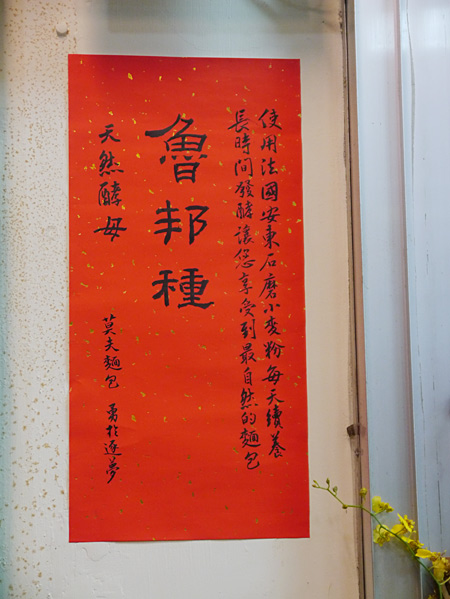 使用法國安東石磨小麥粉每天續養
長時間發酵讓您享受到最自然的麵包
魯邦種
天然酵母
莫夫麵包 勇於逐夢